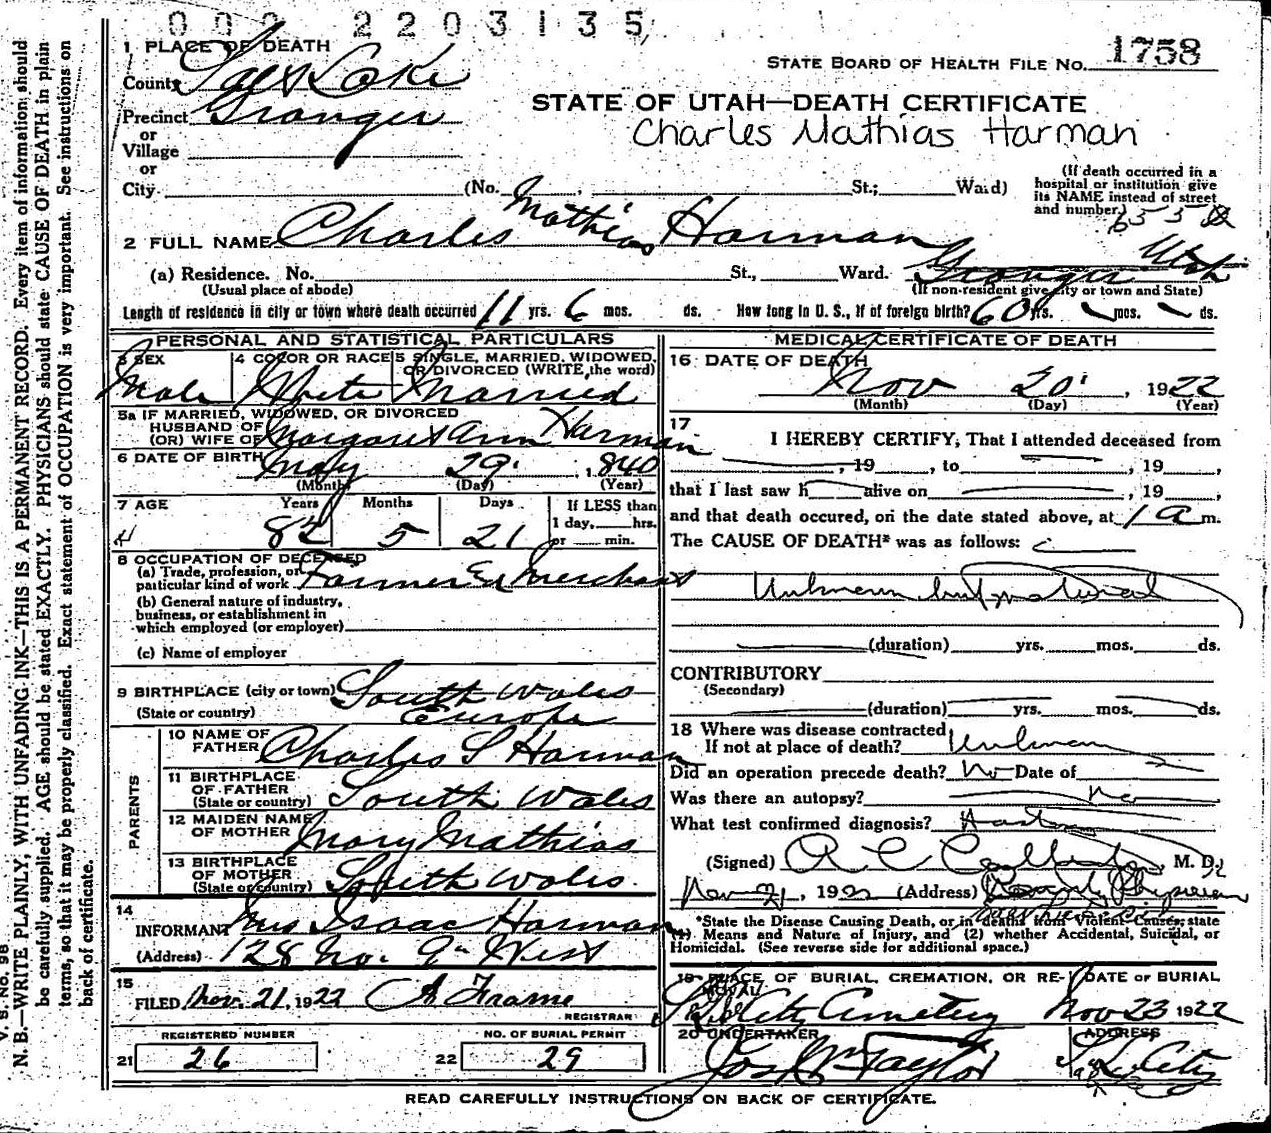 0 0 0 2 2 0 3 1 3 5
1 PLACE OF DEATH
STATE BOARD OF HEALTH FILE NO. 1758
County Salt Lake
STATE OF UTAH—DEATH CERTIFICATE
Precinct Granger
Charles Mathias Harman
or
Village
or
City. (No. St.; Ward)
(If death occurred in a
hospital or institution give
its NAME instead of street
and number.)
2 FULL NAME Charles Mathias Harman
(a) Residence. No. St., Ward. Granger Utah
(Usual place of abode) (If non-resident give city or town and State)
Length of residence in city or town where death occurred 11 yrs. 6 mos. ds. How long in U. S., if of foreign birth? 60 yrs. mos. ds.
PERSONAL AND STATISTICAL PARTICULARS
3 SEX 4 COLOR OR RACE 5 SINGLE, MARRIED, WIDOWED,
OR DIVORCED (WRITE the word)
Male White Married
5a IF MARRIED, WIDOWED, OR DIVORCED
HUSBAND OF
(OR) WIFE OF Margaret Ann Harman
6 DATE OF BIRTH May 29 1840
(Month) (Day) (Year)
7 AGE Years Months Days If LESS than
1 day, hrs.
or min.
82 5 21
8 OCCUPATION OF DECEASED
(a) Trade, profession, or
particular kind of work Farmer & Merchant
(b) General nature of industry,
business, or establishment in
which employed (or employer)
(c) Name of employer
9 BIRTHPLACE (city or town) South Wales
(State or country) Europe
PARENTS
10 NAME OF
FATHER Charles S Harman
11 BIRTHPLACE
OF FATHER
(State or country) South Wales
12 MAIDEN NAME
OF MOTHER Mary Mathias
13 BIRTHPLACE
OF MOTHER
(State or country) South Wales
14
INFORMANT Mrs Isaac Harman
(Address) 128 No. 9th West
15
FILED Nov. 21, 1922 A Frame
REGISTRAR
REGISTERED NUMBER NO. OF BURIAL PERMIT
21 26 22 29
MEDICAL CERTIFICATE OF DEATH
16 DATE OF DEATH
Nov 20 1922
(Month) (Day) (Year)
17
I HEREBY CERTIFY, That I attended deceased from
, 19 , to , 19 ,
that I last saw h alive on , 19 ,
and that death occured, on the date stated above, at 1 a m.
The CAUSE OF DEATH* was as follows:
Unknown but natural
(duration) yrs. mos. ds.
CONTRIBUTORY
(Secondary)
(duration) yrs. mos. ds.
18 Where was disease contracted
If not at place of death? Unknown
Did an operation precede death? No Date of
Was there an autopsy? No
What test confirmed diagnosis?
(Signed) M. D.
Nov 21, 1922 (Address) County Physician
*State the Disease Causing Death, or in deaths from Violent Causes, state
(1) Means and Nature of Injury, and (2) whether Accidental, Suicidal, or
Homicidal. (See reverse side for additional space.)
19 PLACE OF BURIAL, CREMATION, OR RE-
MOVAL
DATE OF BURIAL
Cemetery Nov 23 1922
20 UNDERTAKER ADDRESS
Jos Wm Taylor S L City
READ CAREFULLY INSTRUCTIONS ON BACK OF CERTIFICATE.
V. S. NO. 98
N. B.—WRITE PLAINLY, WITH UNFADING INK—THIS IS A PERMANENT RECORD. Every item of information should
be carefully supplied. AGE should be stated EXACTLY. PHYSICIANS should state CAUSE OF DEATH in plain
terms, so that it may be properly classified. Exact statement of OCCUPATION is very important. See instructions on
back of certificate.